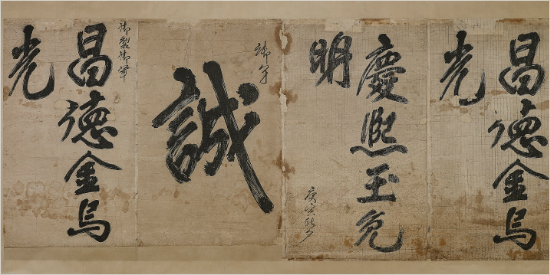 昌德金烏
光
慶熙玉兔
明
庚寅秋夕
御筆
誠
御製御筆
昌德金烏
光